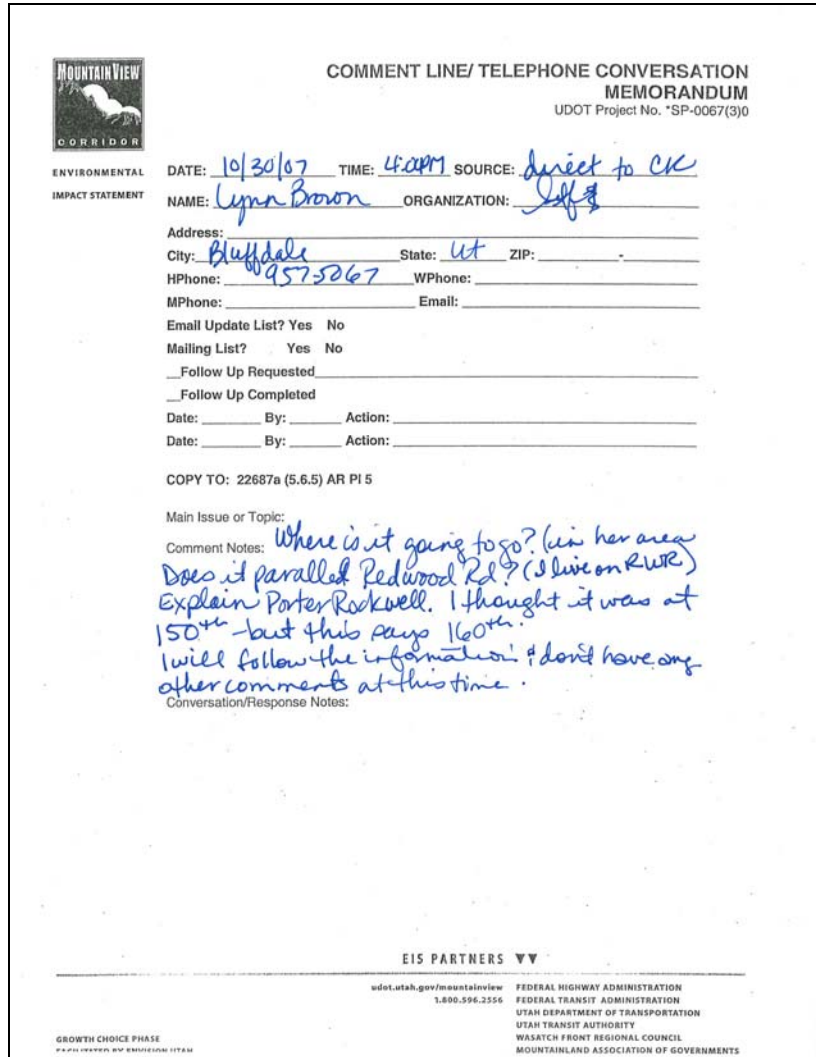 MOUNTAIN VIEW
CORRIDOR
ENVIRONMENTAL
IMPACT STATEMENT
COMMENT LINE/ TELEPHONE CONVERSATION
MEMORANDUM
UDOT Project No. *SP-0067(3)0
DATE: 10/30/07 TIME: 4:00PM SOURCE: direct to CK
NAME: Lynn Brown ORGANIZATION: Self
Address:
City: Bluffdale State: Ut ZIP: -
HPhone: 957-5067 WPhone:
MPhone: Email:
Email Update List? Yes No
Mailing List? Yes No
__Follow Up Requested
__Follow Up Completed
Date: By: Action:
Date: By: Action:
COPY TO: 22687a (5.6.5) AR PI 5
Main Issue or Topic:
Comment Notes: Where is it going to go? (in her area
Does it paralled Redwood Rd? (I live on RWR)
Explain Porter Rockwell. I thought it was at
150th - but this says 160th.
I will follow the information & don't have any
other comments at this time.
Conversation/Response Notes:
EIS PARTNERS ▼▼
udot.utah.gov/mountainview
1.800.596.2556
FEDERAL HIGHWAY ADMINISTRATION
FEDERAL TRANSIT ADMINISTRATION
UTAH DEPARTMENT OF TRANSPORTATION
UTAH TRANSIT AUTHORITY
WASATCH FRONT REGIONAL COUNCIL
MOUNTAINLAND ASSOCIATION OF GOVERNMENTS
GROWTH CHOICE PHASE
FACILITATED BY ENVISION UTAH